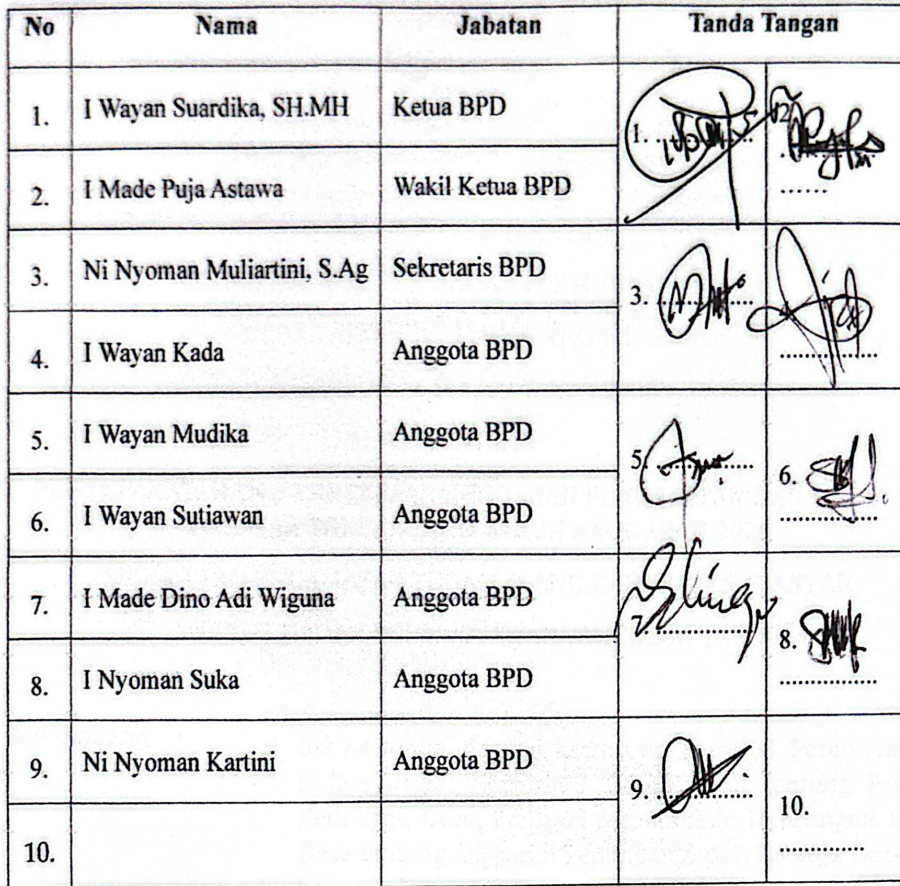 No Nama Jabatan Tanda Tangan
1. I Wayan Suardika, SH.MH Ketua BPD 1. 2.
2. I Made Puja Astawa Wakil Ketua BPD
3. Ni Nyoman Muliartini, S.Ag Sekretaris BPD 3.
4. I Wayan Kada Anggota BPD
5. I Wayan Mudika Anggota BPD 5. 6.
6. I Wayan Sutiawan Anggota BPD
7. I Made Dino Adi Wiguna Anggota BPD 7. 8.
8. I Nyoman Suka Anggota BPD
9. Ni Nyoman Kartini Anggota BPD 9. 10.
10.